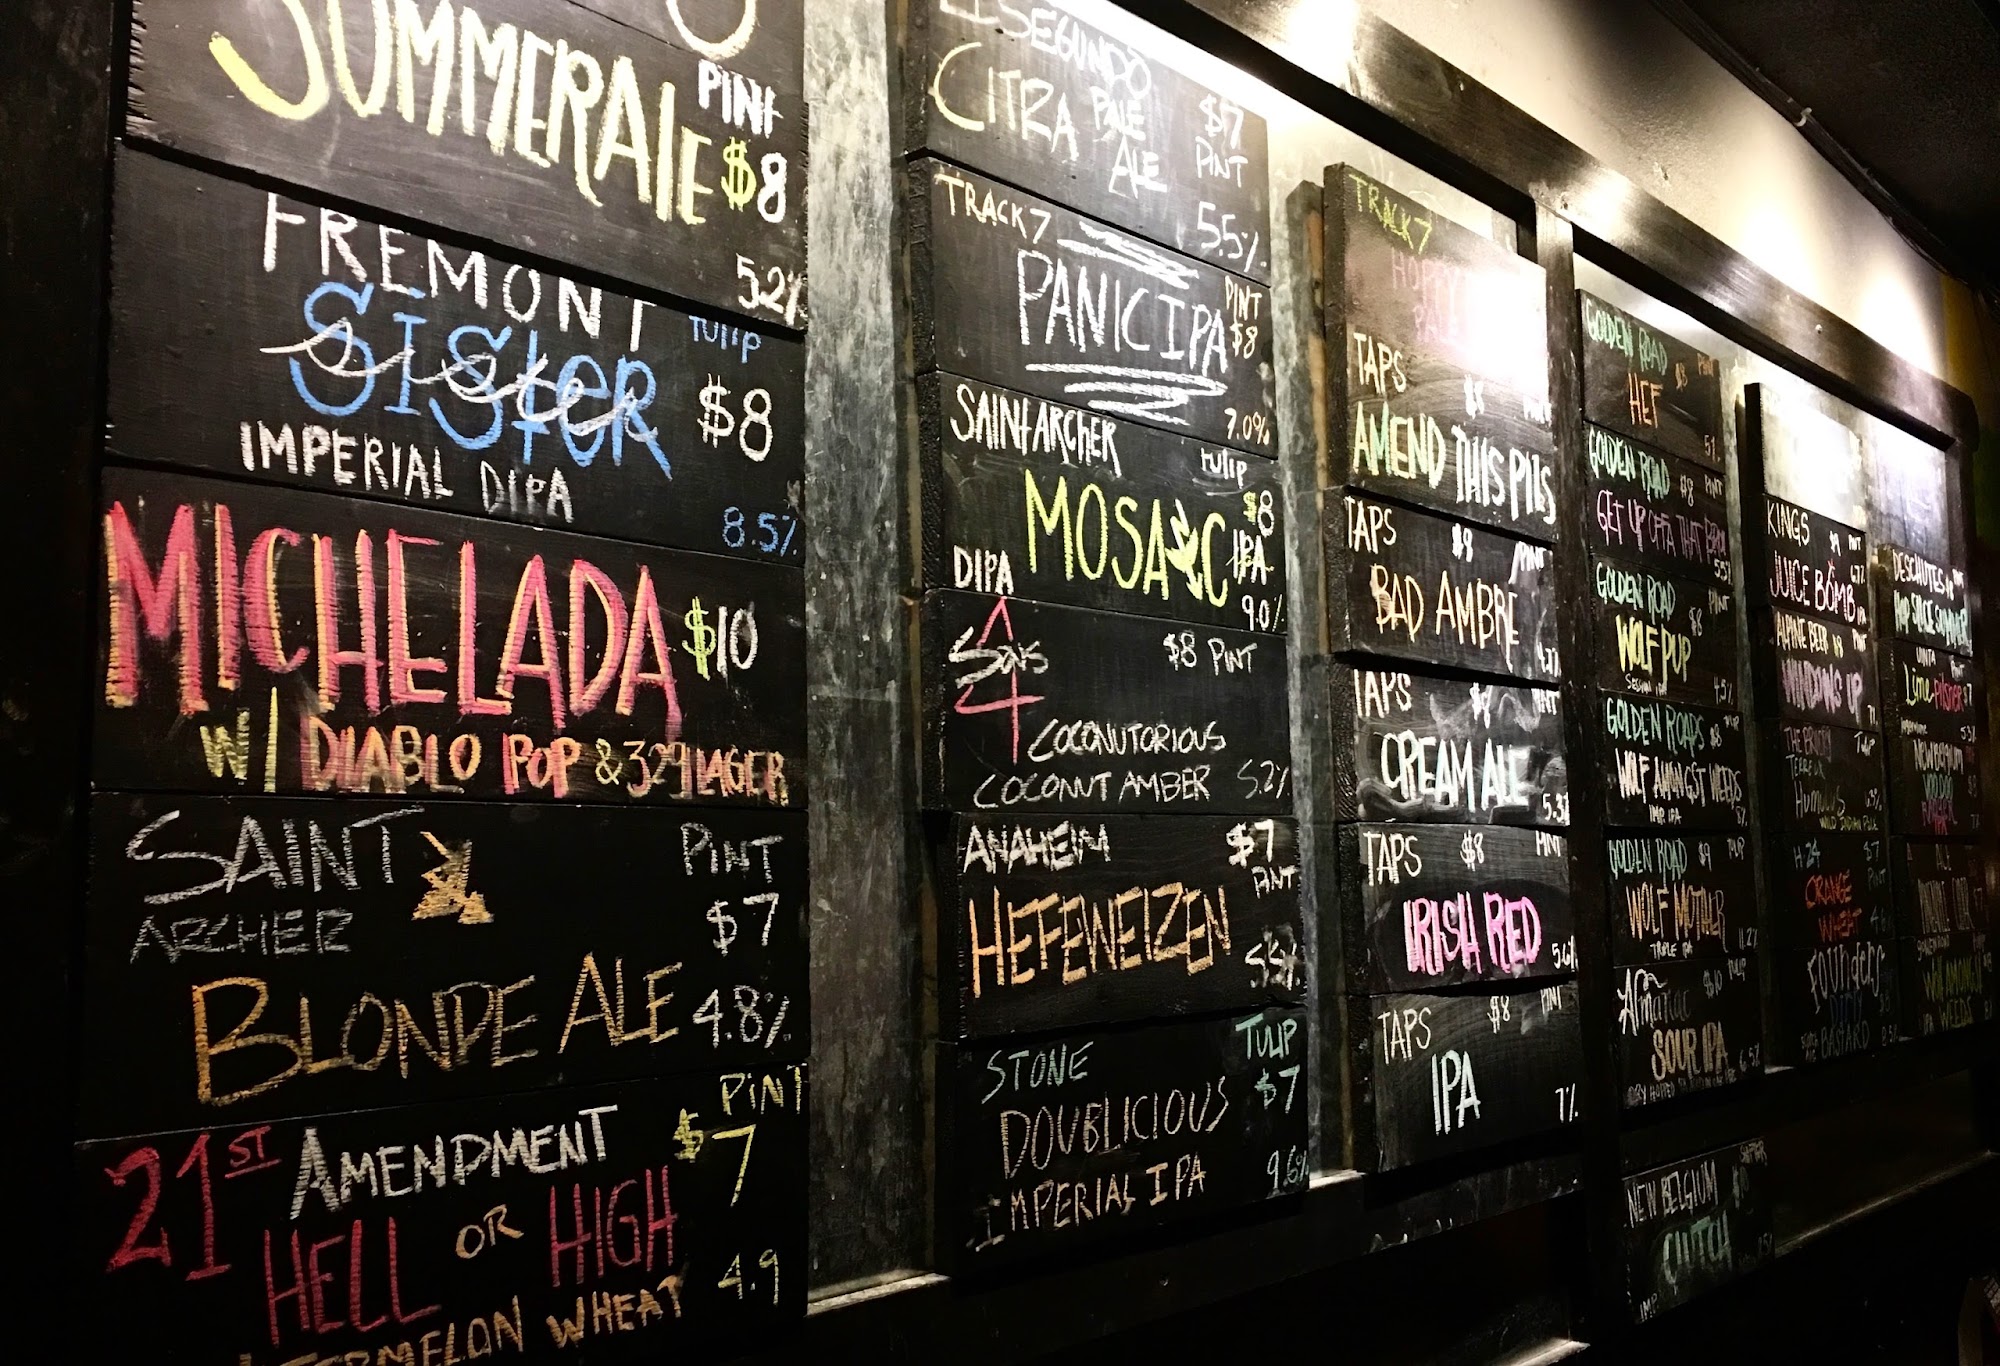 SUMMERALE
PINT
$8
5.2%
FREMONT
SISTER
TULIP
$8
IMPERIAL DIPA
8.5%
MICHELADA $10
W/ DIABLO POP & 329 LAGER
SAINT
ARCHER
PINT
$7
BLONDE ALE 4.8%
21ST AMENDMENT
PINT
$7
HELL OR HIGH
4.9
WHEAT
EL SEGUNDO
CITRA PALE ALE
$7
PINT
5.5%
TRACK 7
PANIC IPA
PINT
$8
7.0%
SAINT ARCHER
TULIP
$8
MOSAIC IPA
DIPA
9.0%
$8 PINT
COCONUTORIOUS
COCONUT AMBER 5.2%
ANAHEIM
$7
PINT
HEFEWEIZEN
5.5%
STONE
TULIP
$7
DOUBLICIOUS
IMPERIAL IPA
9.6%
TRACK 7
HOPPY
PALE
TAPS $8 PINT
AMEND THIS PILS
TAPS $8 PINT
BAD AMBRE
TAPS $8 PINT
CREAM ALE
5.3%
TAPS $8 PINT
IRISH RED
5.6%
TAPS $8 PINT
IPA
7%
GOLDEN ROAD
HEF $8
5%
GOLDEN ROAD $8 PINT
GET UP OFFA THAT BROWN
5.5%
GOLDEN ROAD $8 PINT
WOLF PUP
SESSION IPA
4.5%
GOLDEN ROADS $8
WOLF AMONGST WEEDS
IMP IPA
8%
GOLDEN ROAD $9 TULIP
WOLF MOTHER
TRIPLE IPA
11.2%
ALMANAC $10 TULIP
SOUR IPA
6.5%
NEW BELGIUM
CLUTCH
IMP
KINGS
JUICE BOMB
ALPINE BEER
WINDOWS UP
TULIP
HUMULUS
H 24 $7
ORANGE
WHEAT
PINT
FOUNDERS
BASTARD
DESCHUTES
UINTA
LIME PILSNER
5.3%
NEW BELGIUM
VOODOO
RANGER
WOLF AMONGST
WEEDS